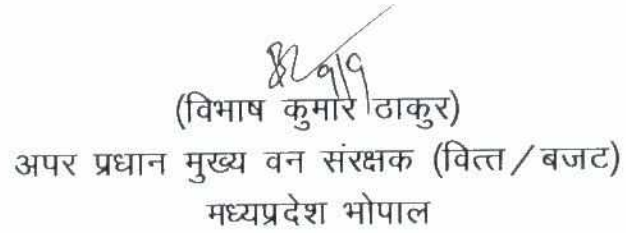 (विभाष कुमार ठाकुर)
अपर प्रधान मुख्य वन संरक्षक (वित्त/बजट)
मध्यप्रदेश भोपाल